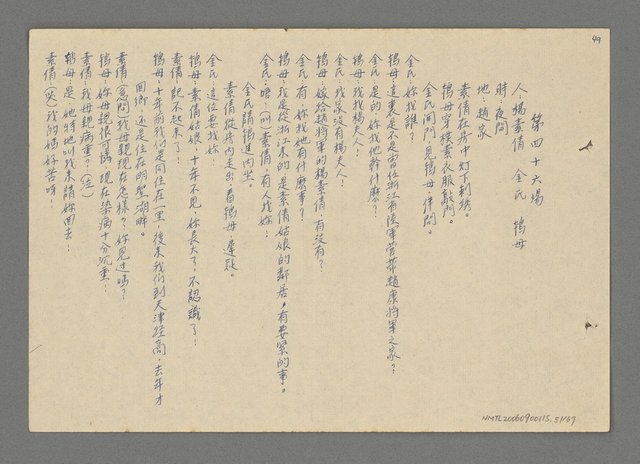 49
第四十六場
人：楊素倩 金氏 鴇母
時：夜間
地：趙家
素倩在房中灯下刺綉。
鴇母穿樸素衣服敲門。
金氏開門，見鴇母，佯問。
金氏：妳找誰？
鴇母：這裏是不是當位浙江省陸軍管帶趙康將軍之家？
金氏：是的，妳找他幹什麼？
鴇母：我找楊夫人！
金氏：我家沒有楊夫人！
鴇母：嫁給趙將軍的楊素倩，有沒有？
金氏：有，妳找她有什麼事？
鴇母：我是從浙江來的，是素倩姑娘的鄰居，有要緊的事。
金氏：唔！（叫）素倩！有人找妳！
金氏請鴇進內坐。
素倩從房內走出，看鴇母，遲疑。
金氏：這位要找妳！
鴇母：素倩姑娘！十年不見，妳長大了，不認識了！
素倩：記不起來了！
鴇母：十年前我們是同住在一里，後來我們到天津経商，去年才
回鄉，还是住在明聖湖畔。
素倩：（急問）我母親現在怎樣？妳見过嗎？
鴇母：妳母親很可憐，現在染病十分沉重！
素倩：我母親病重？（泣）
鴇母：是，她特地叫我來請妳回去！
素倩：（哭）我的媽好苦呀！
NMTL20060900115. 51/69